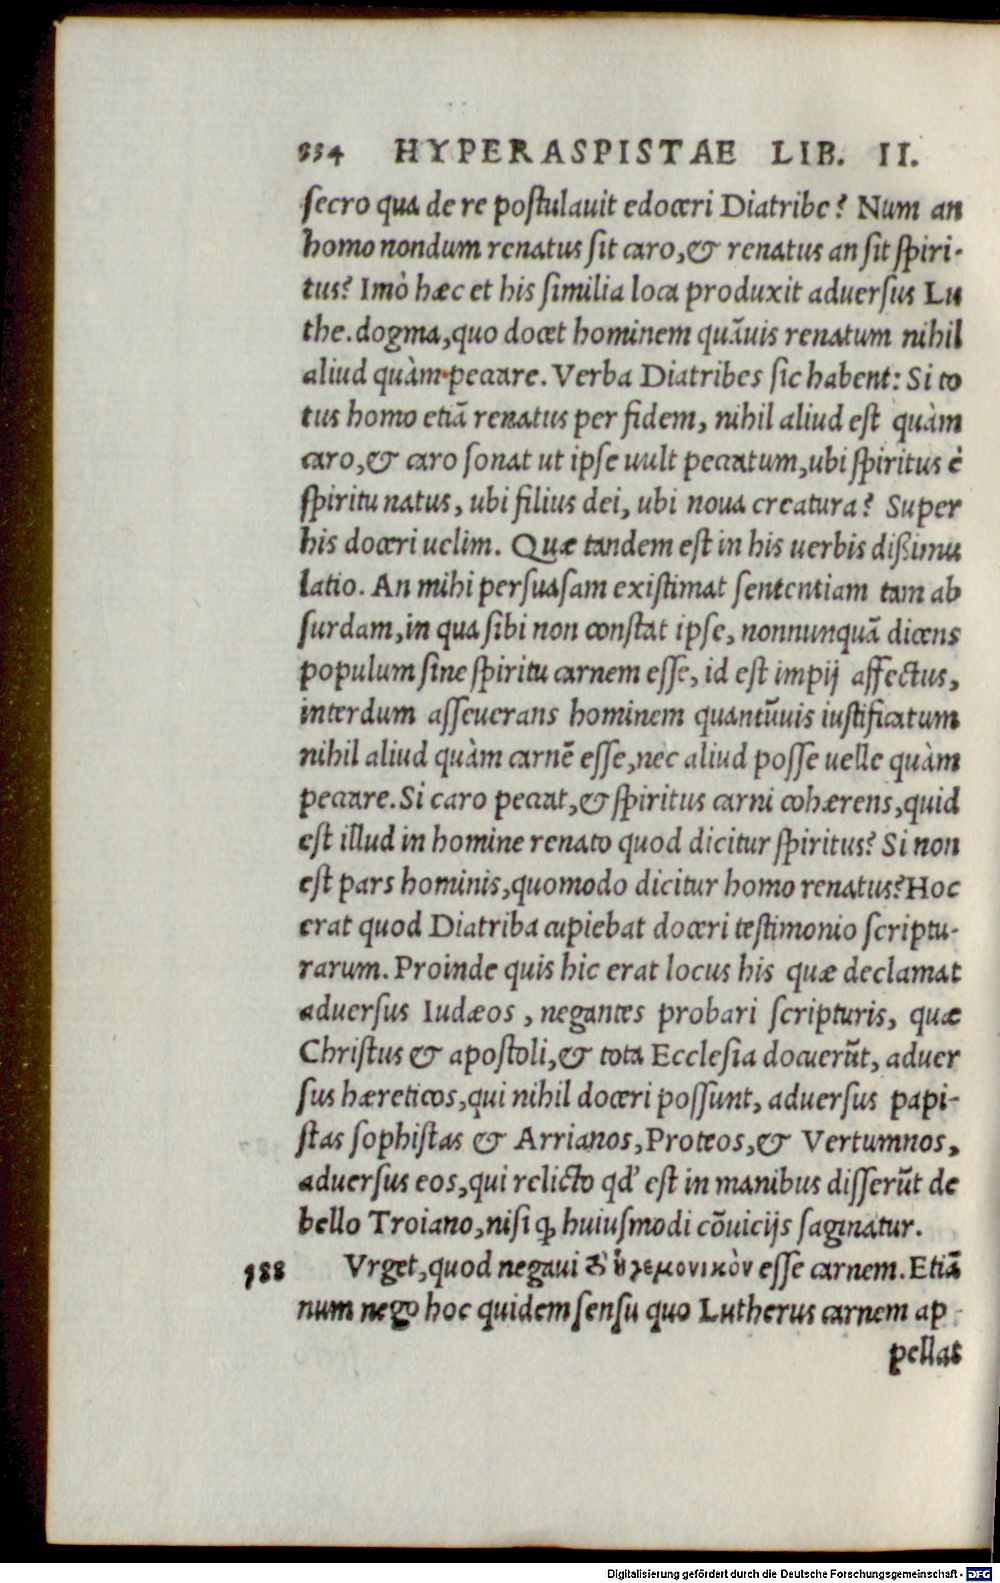 334 HYPERASPISTAE LIB. II.
secro qua de re postulauit edoceri Diatribe? Num an
homo nondum renatus sit caro,& renatus an sit spiri-
tus? Imò hæc et his similia loca produxit aduersus Lu
the. dogma,quo docet hominem quãuis renatum nihil
aliud quàm peccare. Verba Diatribes sic habent: Si to
tus homo etiã renatus per fidem, nihil aliud est quàm
caro,& caro sonat ut ipse uult peccatum,ubi spiritus è
spiritu natus, ubi filius dei, ubi noua creatura? Super
his doceri uelim. Quæ tandem est in his uerbis dißimu
latio. An mihi persuasam existimat sententiam tam ab
surdam,in qua sibi non constat ipse, nonnunquã dicens
populum sine spiritu carnem esse, id est impij affectus,
interdum asseuerans hominem quantũuis iustificatum
nihil aliud quàm carnẽ esse,nec aliud posse uelle quàm
peccare. Si caro peccat,& spiritus carni cohærens,quid
est illud in homine renato quod dicitur spiritus? Si non
est pars hominis,quomodo dicitur homo renatus? Hoc
erat quod Diatriba cupiebat doceri testimonio scriptu-
rarum. Proinde quis hic erat locus his quæ declamat
aduersus Iudæos , negantes probari scripturis, quæ
Christus & apostoli,& tota Ecclesia docuerũt, aduer
sus hæreticos,qui nihil doceri possunt, aduersus papi-
stas sophistas & Arrianos,Proteos,& Vertumnos,
aduersus eos,qui relicto qd' est in manibus disserũt de
bello Troiano,nisi ꝙ huiusmodi cõuicijs saginatur.
988 Vrget,quod negaui τὸ ἡγεμονικὸν esse carnem. Etiã
num nego hoc quidem sensu quo Lutherus carnem ap-
pellat
Digitalisierung gefördert durch die Deutsche Forschungsgemeinschaft - DFG